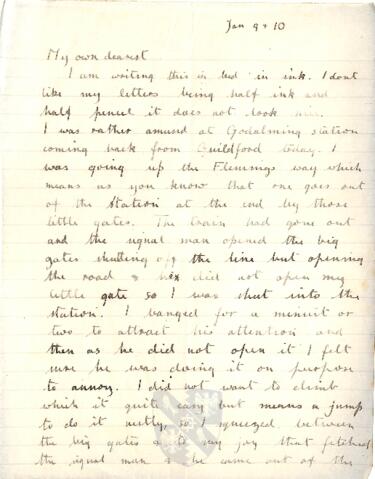 Jan 9 & 10
My own dearest
I am writing this in bed in ink. I dont
like my letters being half ink and
half pencil it does not look nice.
I was rather amused at Godalming station
coming back from Guildford today. I
was going up the Flemmings way which
means as you know that one goes out
of the station at the end by those
little gates. The train had gone out
and the signal man opened the big
gates shutting off the line but opening
the road & he did not open my
little gate so I was shut into the
station. I banged for a minuit or
two to attract his attention and
then as he did not open it I felt
sure he was doing it on purpose
to annoy. I did not want to climb
which it quite easy but means a jump
to do it neatly, so I squeezed between
the big gates & to my joy that fetched
the signal man & he came out of the